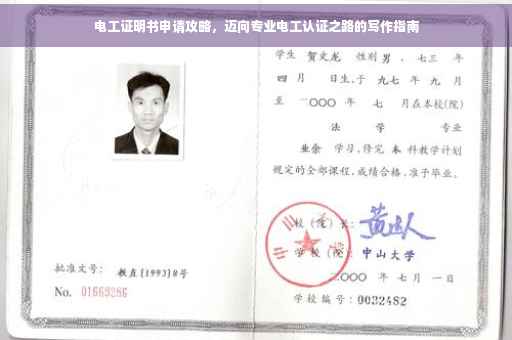 电工证明书申请攻略，迈向专业电工认证之路的写作指南
学生 贺文龙 性别 男，七三 年
四 月 日生，于 九七 年 九 月
至 二〇〇〇 年 七 月在本校(院)
法 学 专业
业余 学习，修完 本 科教学计划
规定的全部课程，成绩合格，准予毕业。
校 (院) 长：
学 校 (院)： 中山大学
二〇〇〇 年 七 月 一 日
批准文号： 教直[1993]8号
No. 01669286
学校编号：0032482